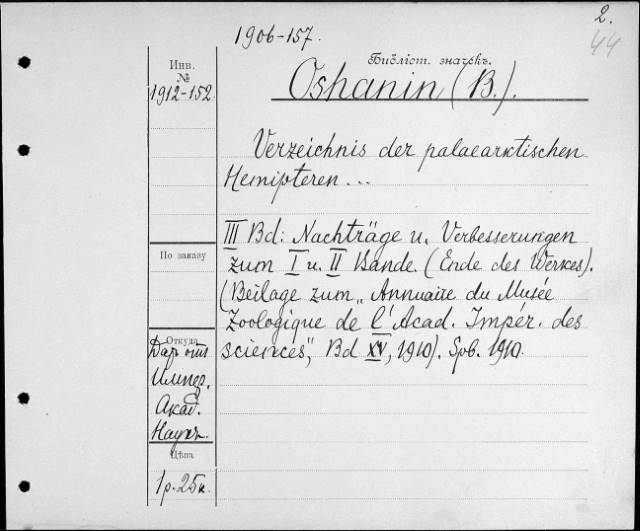 2.
44
1906-157.
Библіот. значекъ.
Инв.
№
1912-152
Oshanin (B.).
Verzeichnis der palaearktischen
Hemipteren...
III Bd: Nachträge u. Verbesserungen
zum I u. II Bande. (Ende des Werkes).
(Beilage zum „Annuaire du Musée
Zoologique de l'Acad. Impér. des
sciences", Bd XV, 1910). Spb. 1910.
По заказу
Откуда
Дар отъ
Импер.
Акад.
Наукъ.
Цѣна
1р.25к.